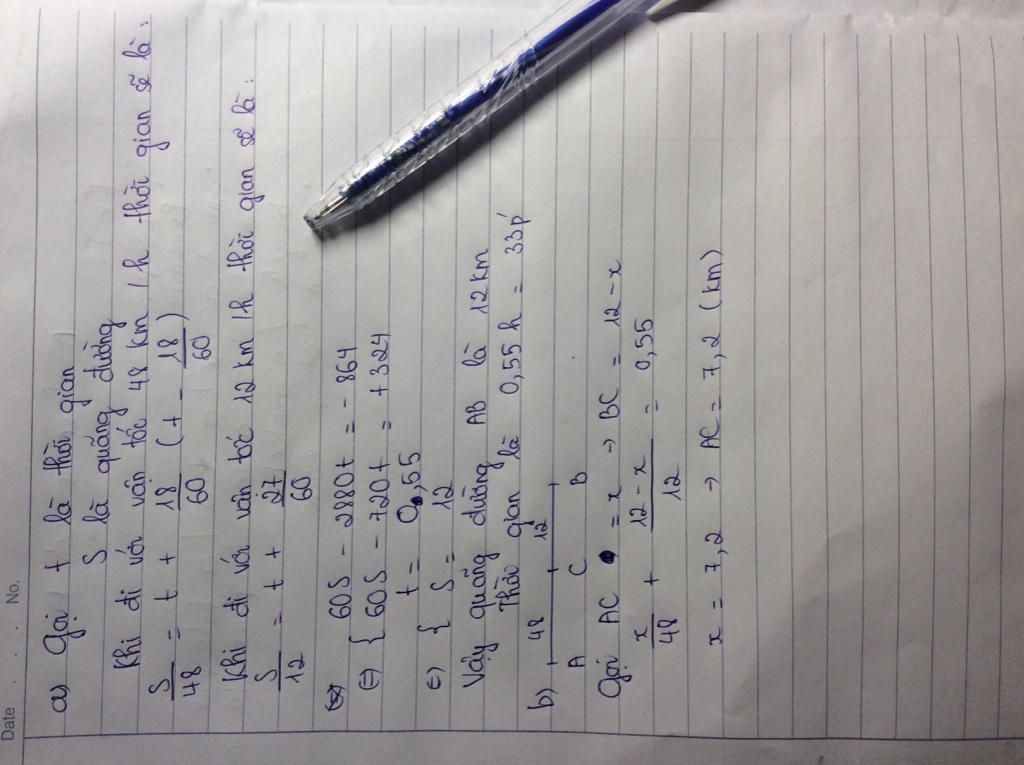 Date . . . No.
a) Gọi t là thời gian
S là quãng đường
Khi đi với vận tốc 48 km 1h thời gian sẽ là :
S/48 = t + 18/60 (t - 18/60)
Khi đi với vận tốc 12 km 1h thời gian sẽ là :
S/12 = t + 27/60
60S - 2880t = - 864
(=) { 60S - 720t = + 324
t = 0,55
(=) { S = 12
Vậy quãng đường AB là 12 km
Thời gian là 0,55 h = 33p'
b) 48 12
A C B
Gọi AC = x → BC = 12 - x
x/48 + 12 - x/12 = 0,55
x = 7,2 → AC = 7,2 (km)